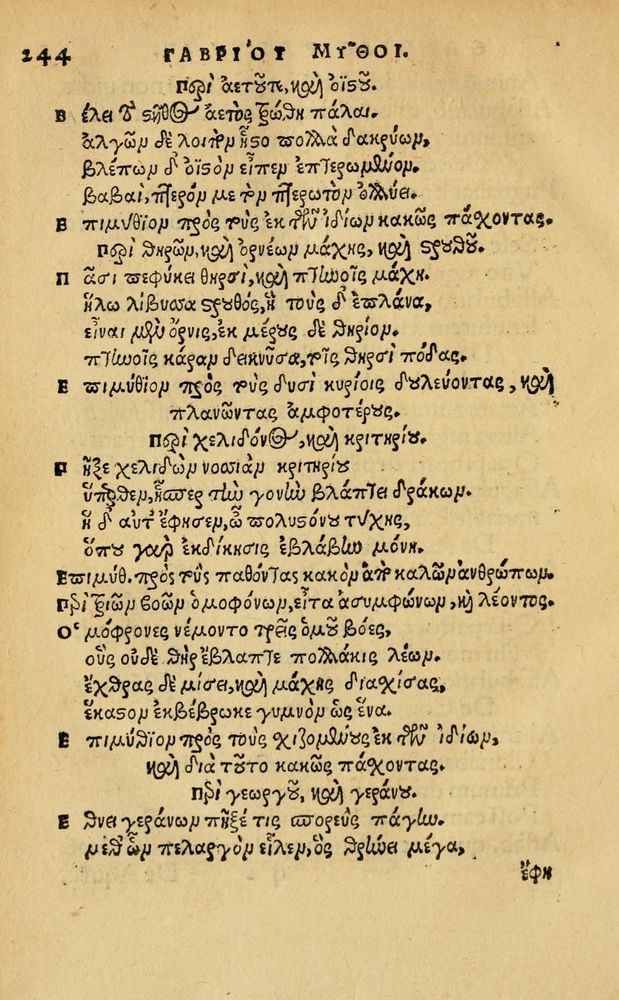 244 ΓΑΒΡΙ´ΟΥ ΜΥ῀ΘΟΙ.
Περὶ ἀετοῦ, καὶ ὀϊςοῦ.
Β έλει τὸ ςῆθος ἀετὸς ἐξώθη πάλαι.
ἀλγῶν δὲ λοιπὸν ἧςο πολλὰ δακρύων,
βλέπων δ' ὀϊςὸν εἶπεν ἐπτερωμῶνον.
βαβαὶ, πτερόν με τὸν πτερωτὸν ὀλλύει.
Ε πιμύθιον πρὸς τοὺς ἐκ τῶν ἰδίων κακῶς πάχοντας.
Περὶ θηρῶν, καὶ ὀρνέων μάχης, καὶ ςρουθοῦ.
Π ᾶσι πεφύκει θηρσὶ, καὶ πτηνοῖς μάχη.
ἥλω λίβυσσα ςρουθὸς, ἣ τοὺς δ' ἐπλάνα,
εἶναι μὲν ὄρνις, ἐκ μέρους δὲ θηρίον.
πτηνοῖς κάραν δεικνῦσα, τοῖς θηρσὶ πόδας.
Ε πιμύθιον πρὸς τοὺς δυσὶ κυρίοις δουλεύοντας, καὶ
πλανῶντας ἀμφοτέρους.
Περὶ χελιδόνος, καὶ κριτηρίου.
Ρ ῆξε χελιδὼν νοσσιὰν κριτηρίου
ὕπερθεν, ἧσπερ τὴν γονὴν βλάπτει δράκων.
ἣ δ' αὖτ' ἔφησεν, ὦ πολυςόνου τύχης,
ὅπου γὰρ ἐκδίκησις ἐβλάβην μόνη.
Επιμύθ. πρὸς τοὺς παθόντας κακὸν ἀπὸ καλῶν ἀνθρώπων.
Περὶ τριῶν βοῶν ὁμοφόνων, εἶτα ἀσυμφώνων, καὶ λέοντος.
Ο῾ μόφρονες νέμοντο τρεῖς ὁμοῦ βόες,
οὓς οὐδὲ θὴρ ἔβλαπτε πολλάκις λέων.
ἔχθρας δὲ μίσει, καὶ μάχης διαχίσας,
ἕκαςον ἐκβέβρωκε γυμνὸν ὡς ἕνα.
Ε πιμύθιον πρὸς τοὺς χιζομένους ἐκ τῶν ἰδίων,
καὶ διὰ τοῦτο κακῶς πάχοντας.
Περὶ γεωργοῦ, καὶ γεράνου.
Ε θνει γεράνων πῆξέ τις σπορεὺς πάγην.
μεθ' ὧν πελαργὸν εἷλεν, ὃς θρήνει μέγα,
ἔφη